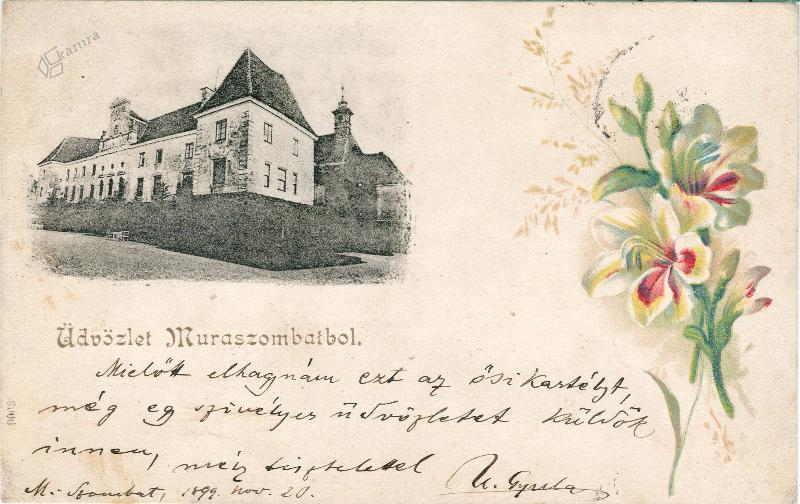 kamra
Üdvözlet Muraszombatbol.
Mielőtt elhagnám ezt az ősi Kastélyt,
még eg szivélyes üdvözletet küldök
innen, mély tisztelettel
M. Szombat, 1899. nov. 20.
Gyula